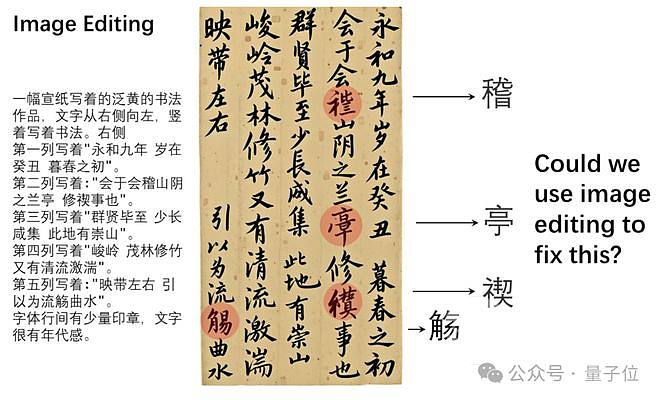 Image Editing
一幅宣纸写着的泛黄的书法
作品，文字从右侧向左，竖
着写着书法。右侧
第一列写着"永和九年 岁在
癸丑 暮春之初"。
第二列写着:"会于会稽山阴
之兰亭 修禊事也"。
第三列写着"群贤毕至 少长
咸集 此地有崇山"。
第四列写着"峻岭 茂林修竹
又有清流激湍"。
第五列写着:"映带左右 引
以为流觞曲水"。
字体行间有少量印章，文字
很有年代感。
永和九年岁在癸丑 暮春之初
会于会山阴之兰修事也
群賢毕至少長咸集 此地有崇山
峻岭茂林修竹又有清流激湍
映带左右 引以为流曲水
稽
亭
禊
觞
Could we
use image
editing to
fix this?
公众号 · 量子位